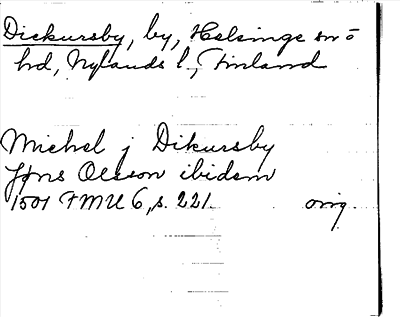 Dickursby, by, Helsinge sn o
hd, Nylands l., Finland
Michel j Dikursby
Jöns Olsson ibidem
1501 FMU 6, s. 221. orig.